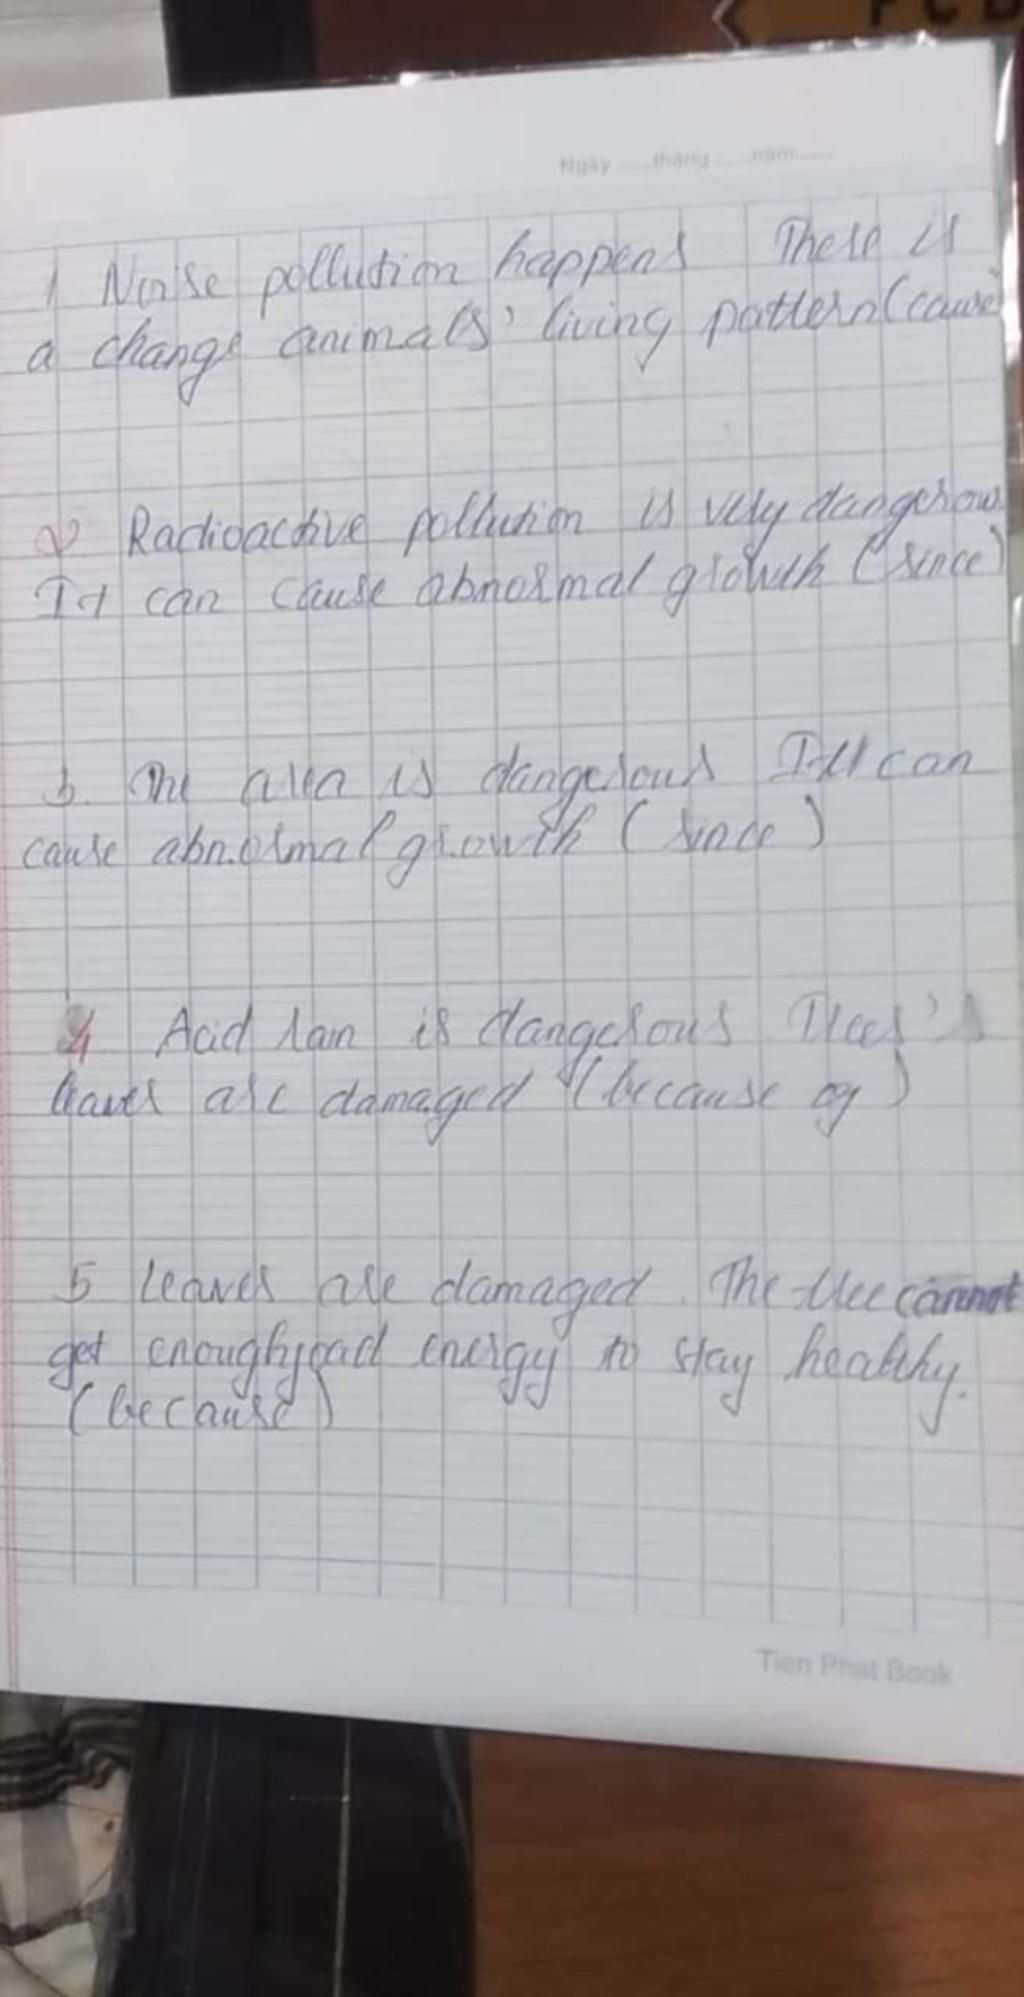 FCB
Ngày ...... tháng ...... năm ......
1 Noise pollution happens There is
a change animals' living pattern (cause)
2 Radioactive pollution is very dangerous
It can cause abnormal growth (since)
3. The area is dangerous It can
cause abnormal growth (since)
4 Acid rain is dangerous Trees's
leaves are damaged (because of)
5 leaves are damaged. The tree cannot
get enough energy to stay healthy.
(because)
Tien Phat Book